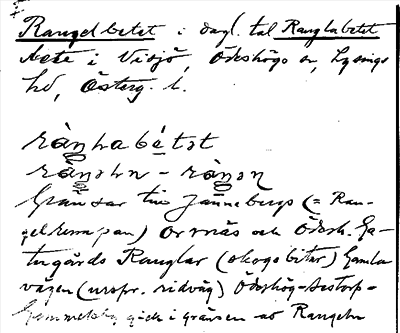 Rangelbetet i dagl. tal Ranglabetet
Äete i Visjö, Ödeshögs sn, Lysings
hd, Österg. l.
ràŋlabétət
ràŋəln - ràŋən
Gränsar till Jänneberga (= Ran-
gelkempan) Ormnäs och Ödesh. Ga-
tugårds Ranglar (skogsbitar) Gamla
vägen (urspr. ridväg) Ödeshög-Aastorp-
gick i gränsen av Rangeln